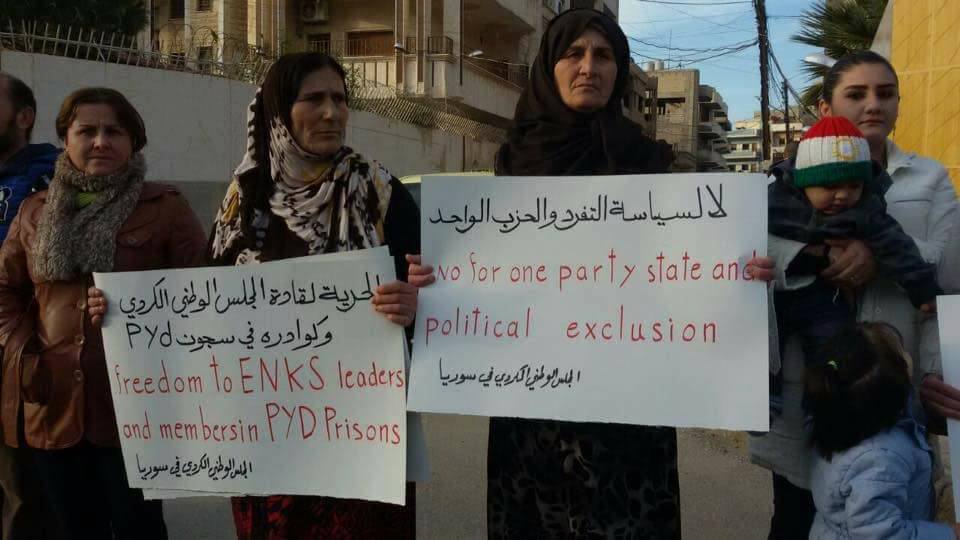 الحرية لقادة المجلس الوطني الكردي
وكوادره في سجون PYD
freedom to ENKS leaders
and membersin PYD Prisons
المجلس الوطني الكردي في سوريا
لا لسياسة التفرد والحزب الواحد
No for one party state and
political exclusion
المجلس الوطني الكردي في سوريا